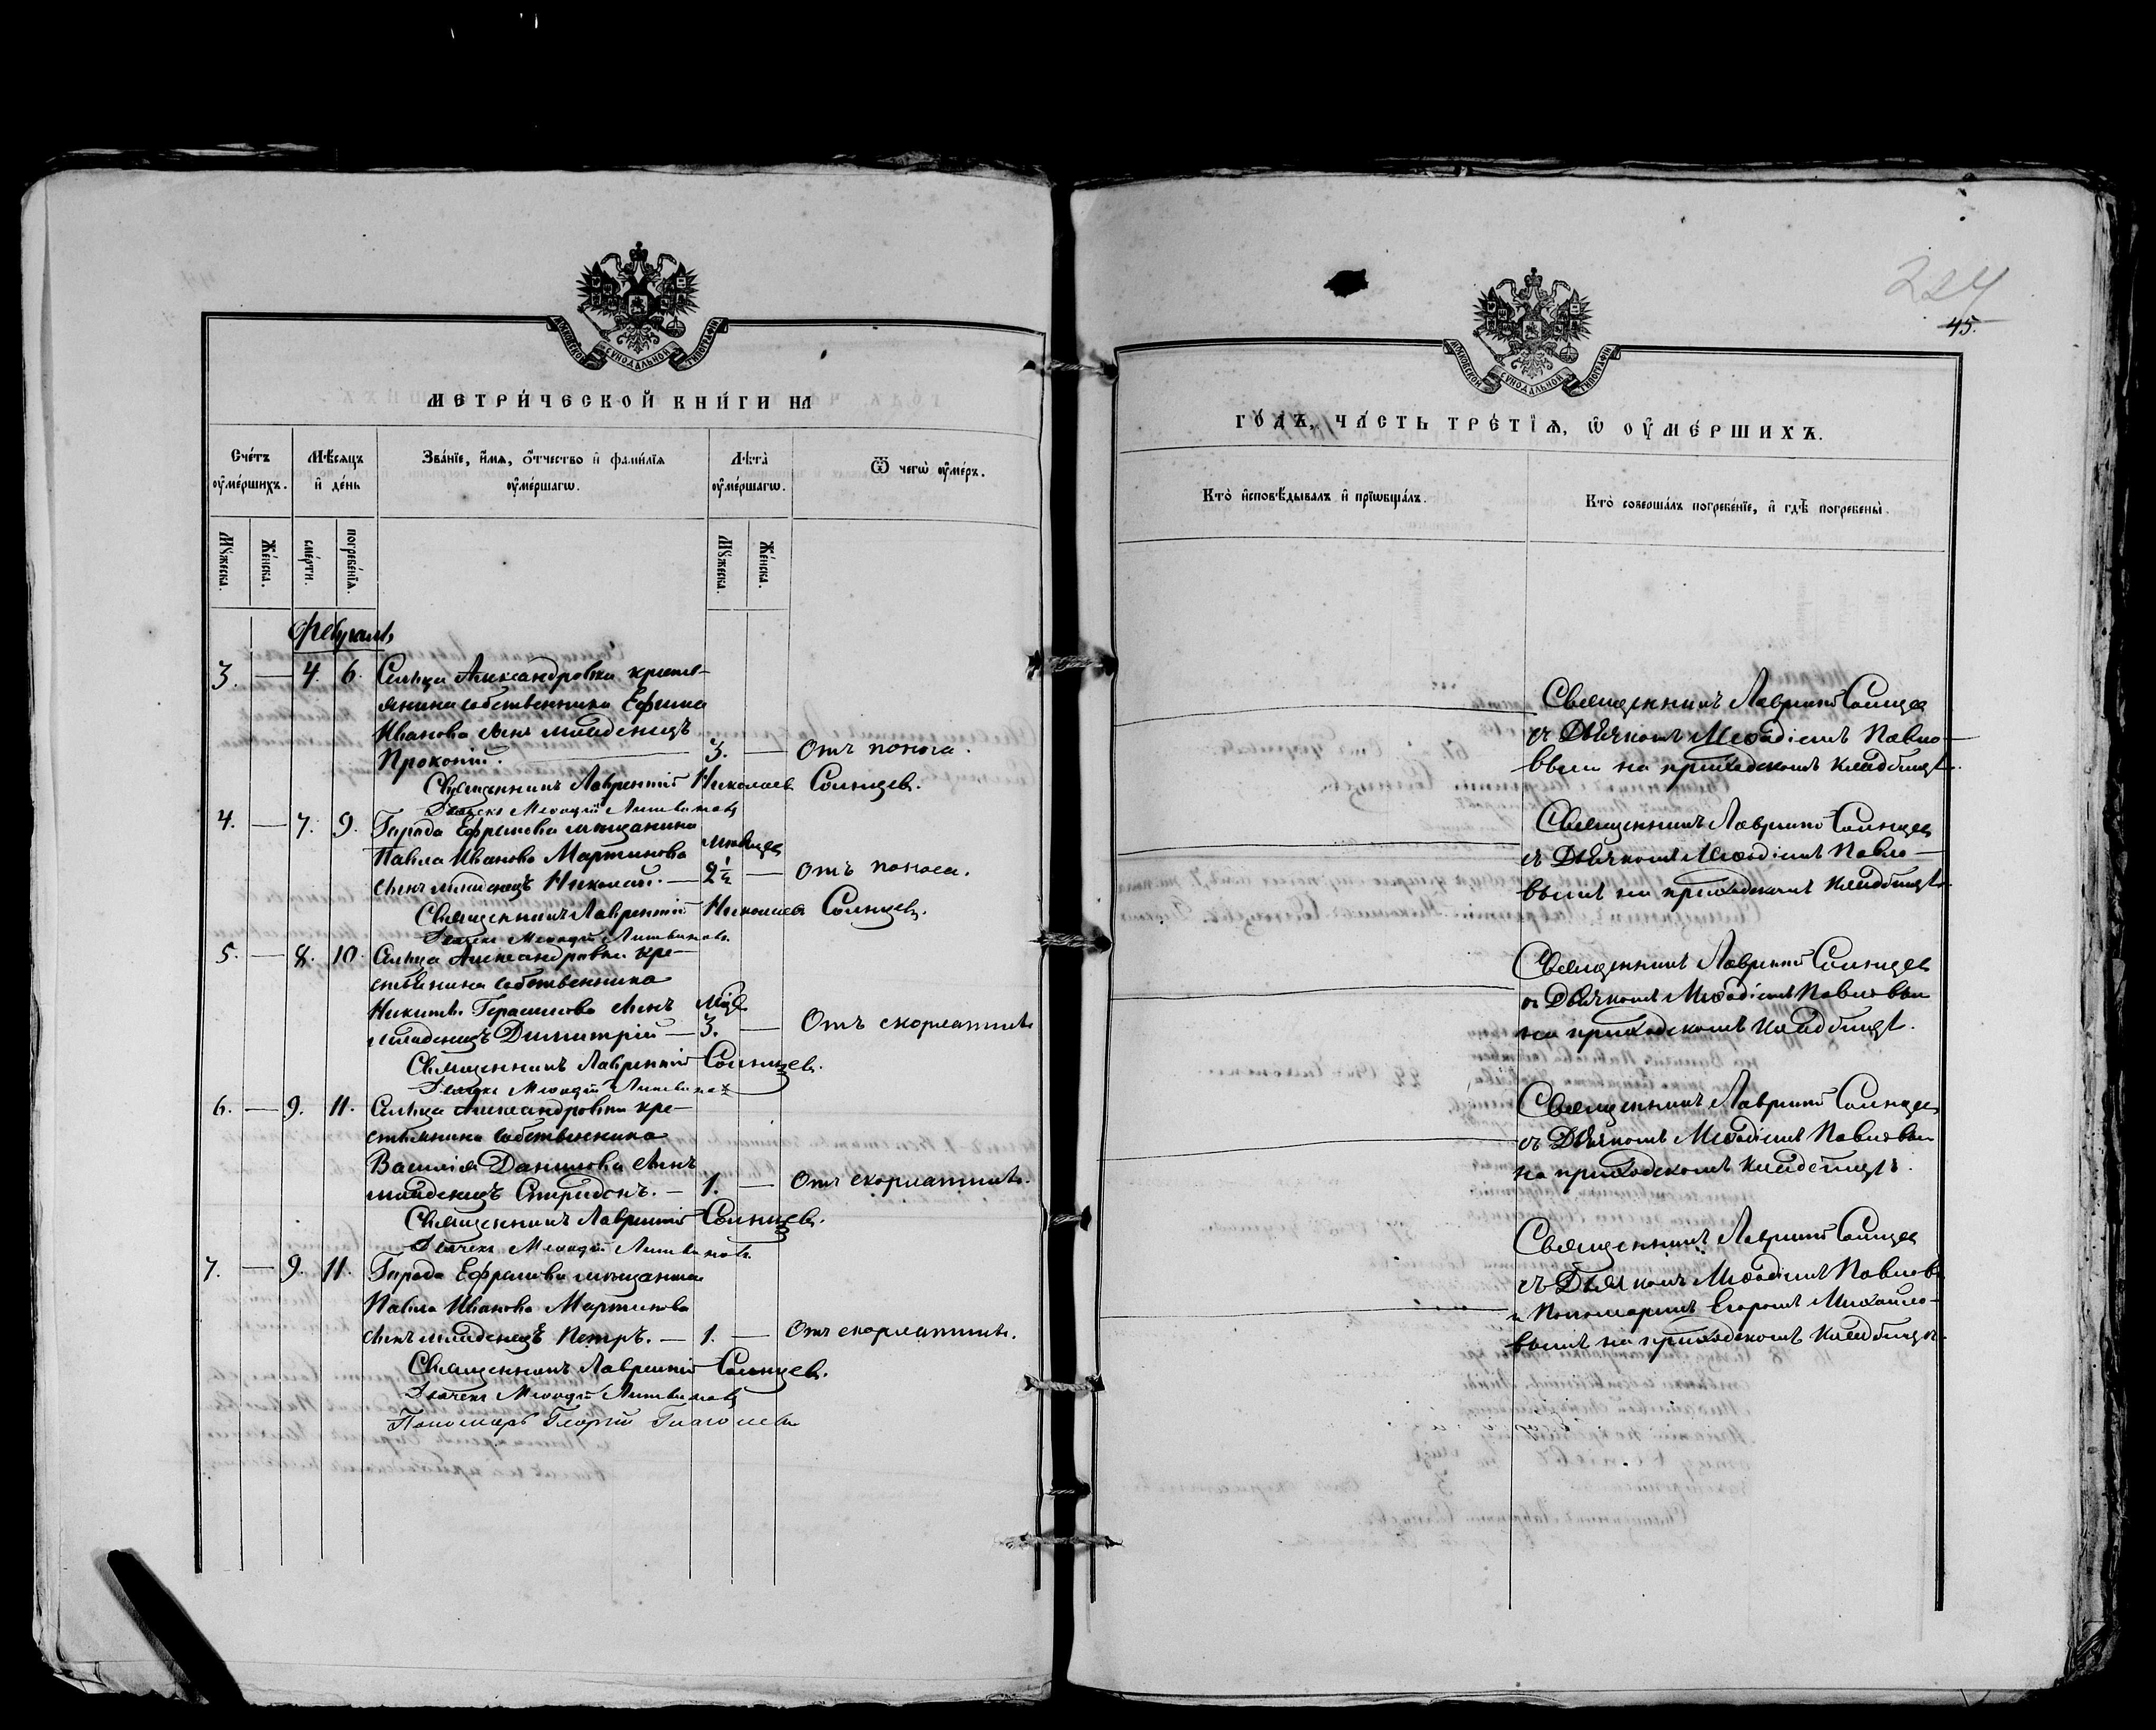 МОСКОВСКОЙ СѴНОДАЛЬНОЙ ТИПОГРАФІИ
МЕТРИ́ЧЕСКОЙ КНИ́ГИ НА
Сче́тъ ᲂу҆ме́ршихъ.
Мѣ́сяцъ и҆ де́нь
Зва́нїе, и҆́мѧ, ѻ҆́тчество и҆ фами́лїѧ ᲂу҆ме́ршагѡ.
Лѣта̀ ᲂу҆ме́ршагѡ.
Ѿ чегѡ̀ ᲂу҆ме́ръ.
Мꙋ́жеска.
Же́нска.
сме́рти.
погребе́нїѧ.
Мꙋ́жеска.
Же́нска.
Февраль
3. — 4. 6. Сельца Александровки кресть-
янина собственника Ефима
Иванова сынъ младенецъ
Прокопій. 3. — Отъ поноса.
Священникъ Лаврентій Николаевъ Солнцевъ.
Дьячекъ Меѳодій Литвиновъ
4. — 7. 9. Города Ефремова мещанина
Павла Иванова Мартинова месяцев
сынъ младенецъ Николай. — 2½ — Отъ поноса.
Священникъ Лаврентій Николаевъ Солнцевъ.
Дьячекъ Меѳодій Литвиновъ
5. — 8. 10. Сельца Александровки кре-
стьянина собственника
Никиты Герасимова сынъ
младенецъ Димитрій — 3. — Отъ скорлатины
Священникъ Лаврентій Солнцевъ.
Дьячекъ Меѳодій Литвиновъ
6. — 9. 11. Сельца Александровки кре-
стьянина собственника
Василія Данилова сынъ
младенецъ Спиридонъ. — 1. — Отъ скорлатины.
Священникъ Лаврентій Солнцевъ.
Дьячекъ Меѳодій Литвиновъ
7. — 9. 11. Города Ефремова мещанина
Павла Иванова Мартинова
сынъ младенецъ Петръ. — 1. — Отъ скорлатины.
Священникъ Лаврентій Солнцевъ.
Дьячекъ Меѳодій Литвиновъ
Пономарь Георгій Глаголевъ
224
45.
МОСКОВСКОЙ СѴНОДАЛЬНОЙ ТИПОГРАФІИ
ГО́ДЪ, ЧА́СТЬ ТРЕ́ТЇѦ, Ѡ҆ ОУ҆МЕ́РШИХЪ.
Кто̀ и҆сповѣ́дывалъ и҆ прїѡбща́лъ.
Кто̀ соверша́лъ погребе́нїе, и҆ гдѣ̀ погребены̀.
Священникъ Лаврентій Солнцев
съ Дьячкомъ Меѳодіемъ Павло-
вым на приходскомъ кладбищѣ.
Священникъ Лаврентій Солнцев
съ Дьячкомъ Меѳодіемъ Павло-
вымъ на приходскомъ кладбищѣ.
Священникъ Лаврентій Солнцев
съ Дьячкомъ Меѳодіемъ Павловым
на приходскомъ кладбищѣ.
Священникъ Лаврентій Солнцев
съ Дьячкомъ Меѳодіемъ Павловым
на приходскомъ кладбищѣ.
Священникъ Лаврентій Солнцев
съ Дьячкомъ Меѳодіемъ Павлов
и Пономаремъ Егоромъ Михайло-
вымъ на приходскомъ кладбищѣ.